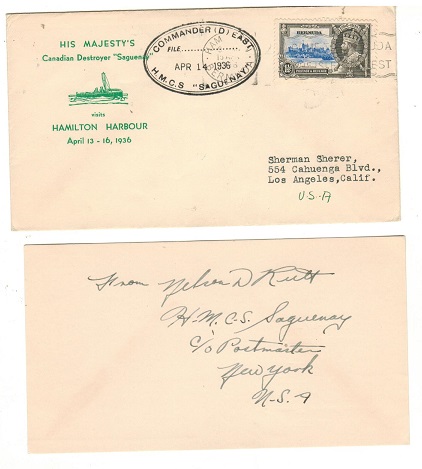 HIS MAJESTY'S
Canadian Destroyer "Saguenay"
visits
HAMILTON HARBOUR
April 13 - 16, 1936
COMMANDER (D) EAST
FILE
APR 14 1936
H.M.C.S "SAGUENAY"
BERMUDA
POSTAGE & REVENUE
Sherman Sherer,
554 Cahuenga Blvd.,
Los Angeles, Calif.
U.S.A
From Nelson D Rutt
H.M.C.S. Saguenay
c/o Postmaster
New York
N.S.A